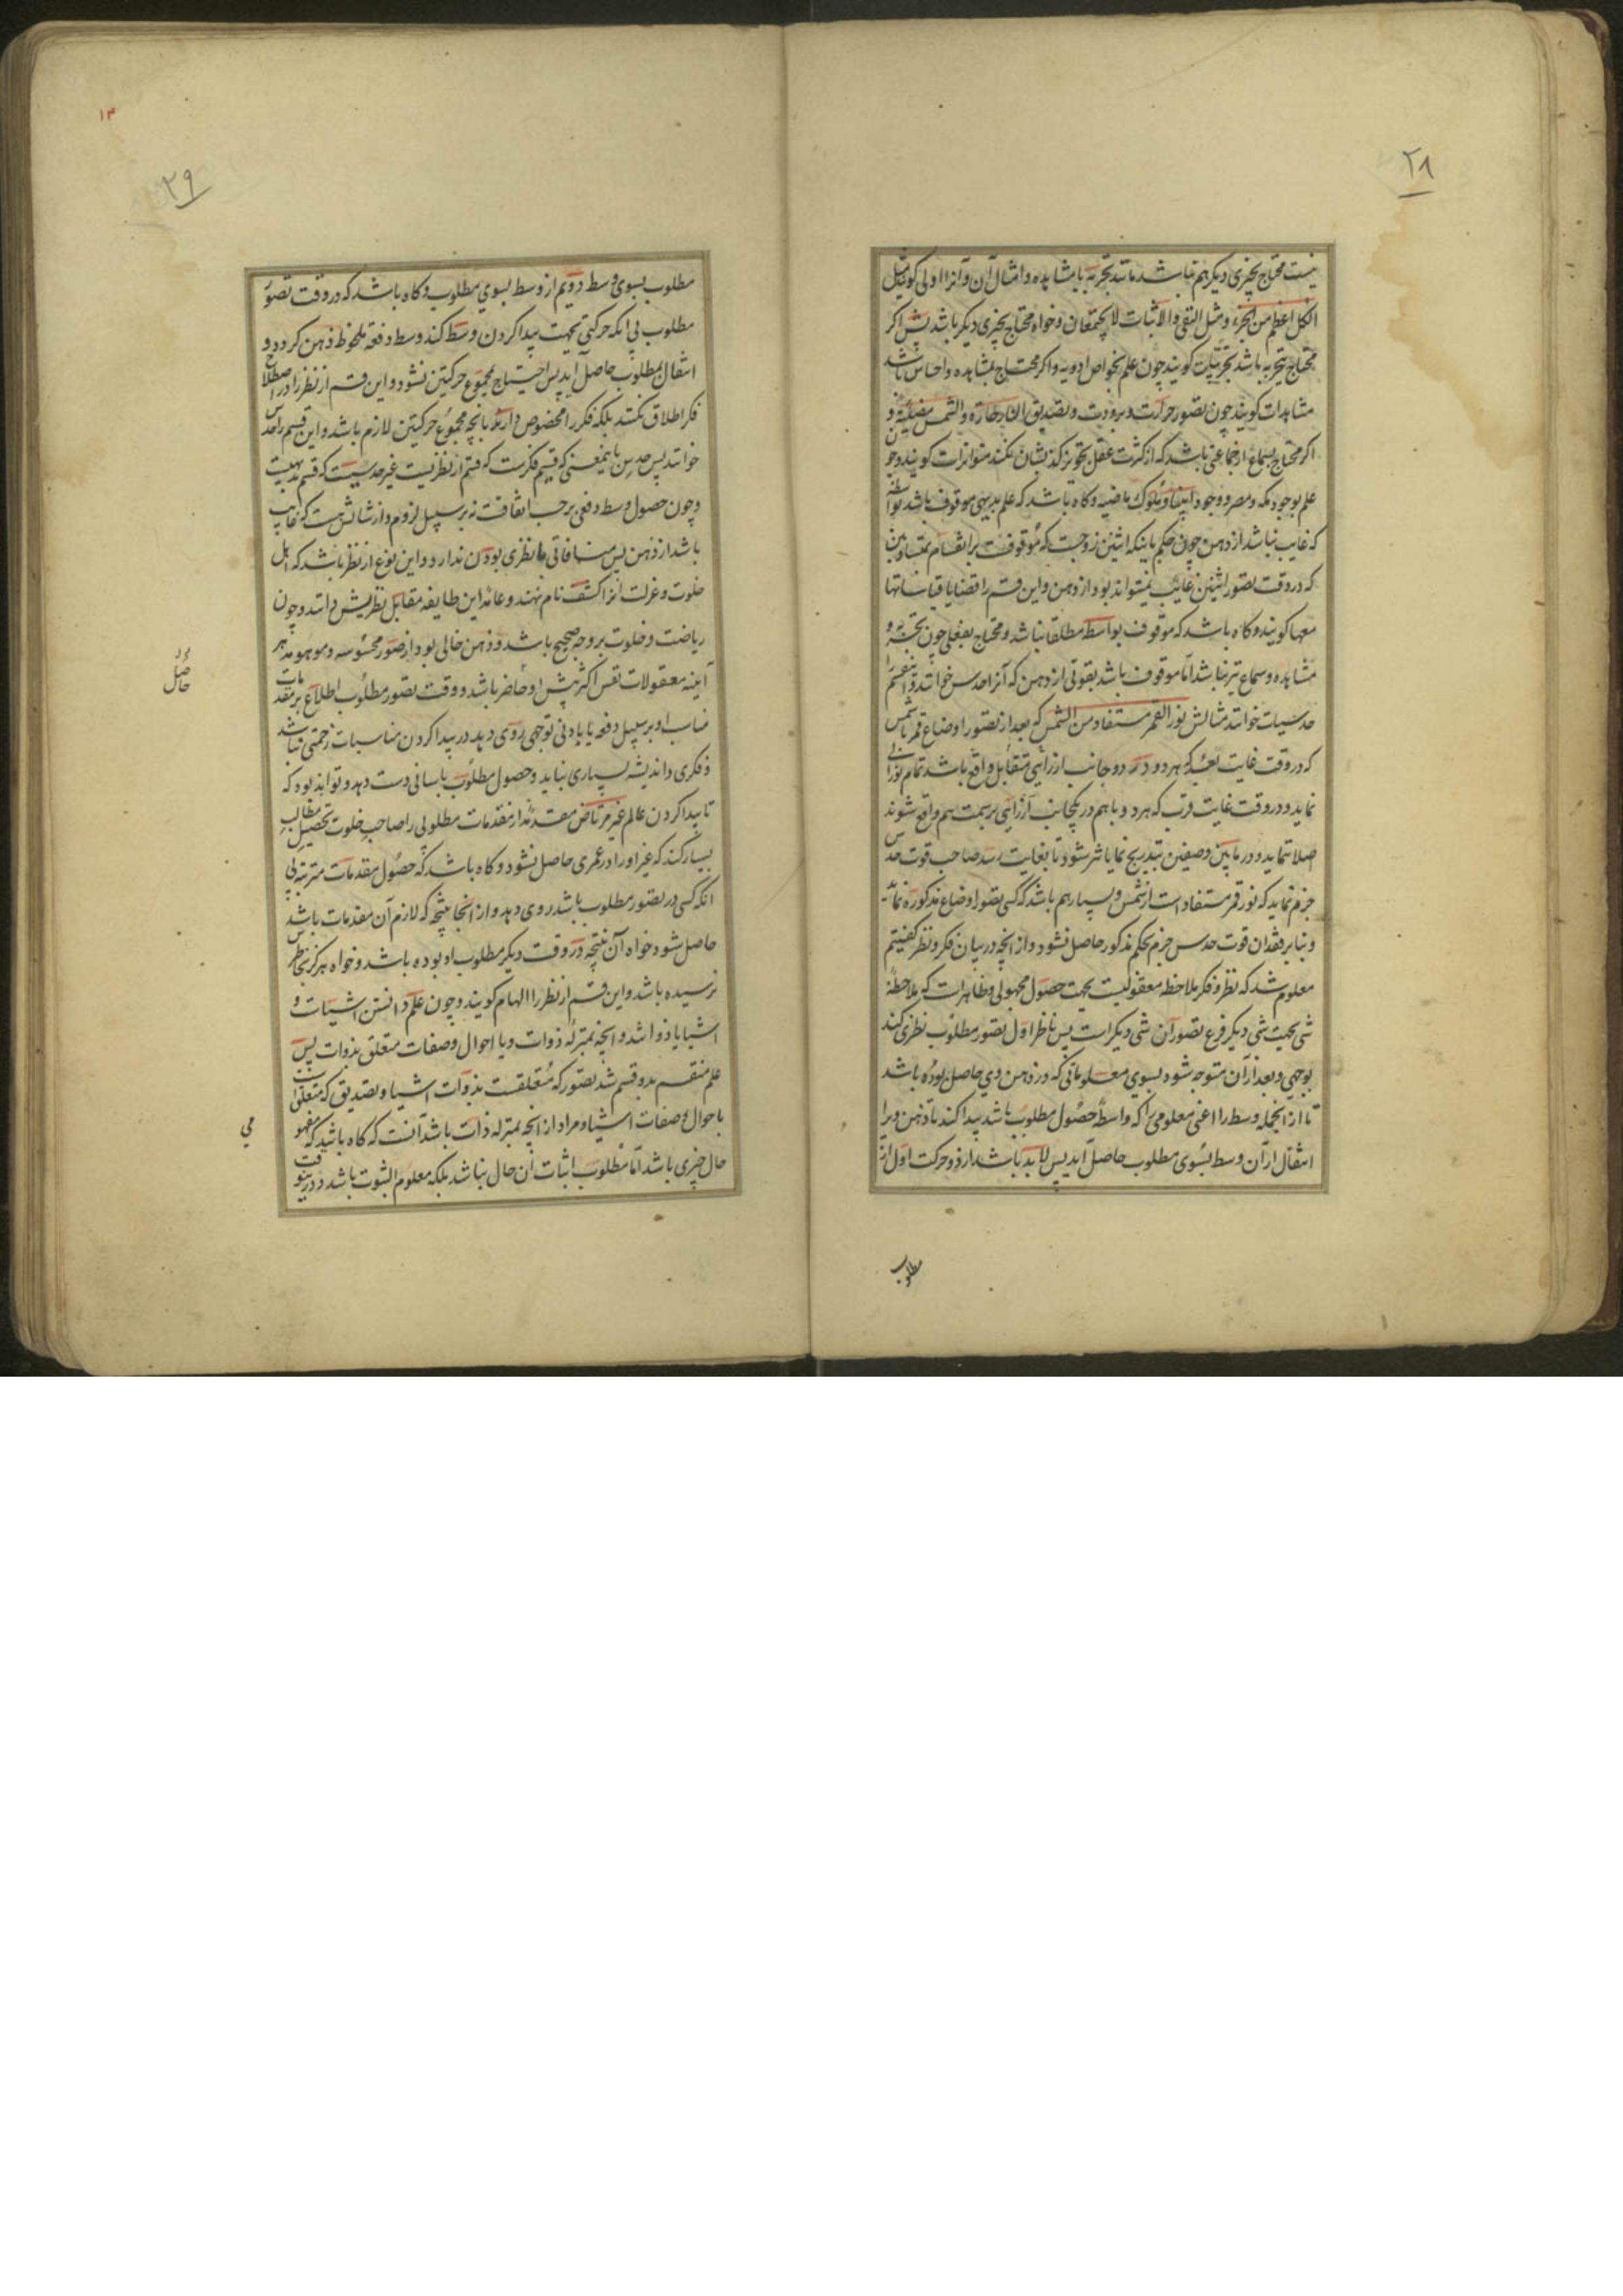 ۲۸
نیست محتاج بچیزی دیگر هم نباشد مانند تجربه یا مشاهده و امثال آن و آنرا اولی گویند مثل
الکل اعظم من الجزء و مثل النفی و الاثبات لا یجتمعان و خواه محتاج بچیزی دیگر باشد پس اگر
محتاج بتجربه باشد تجربیات گویند چون علم بخواص ادویه و اگر محتاج بمشاهده و احساس باشد
مشاهدات گویند چون تصور حرارت و برودت و تصدیق النار حارة و الشمس مضیئة و
اگر محتاج بسماع از جماعتی باشد که از کثرت عقل تجویز کذب ایشان نکند متواترات گویند چون
علم بوجود مکه و مصر و وجود انبیا و ملوک ماضیه و گاه باشد که علم بدیهی موقوف باشد بواسطه
که غایب نباشد از ذهن چون حکم باینکه اثنین زوجست که موقوفست بر انقسام بمتساویین
که در وقت تصور اثنین غائب نمیتواند بود از ذهن و این قسم را قضایا قیاساتها
معها گویند و گاه باشد که موقوف بواسطه مطلقا نباشد و محتاج بفعلی چون تجربه و
مشاهده و سماع نیز نباشد اما موقوف باشد بقوتی از ذهن که آنرا حدس خوانند و این قسم را
حدسیات خوانند مثالش نور القمر مستفاد من الشمس که بعد از تصور اوضاع قمر با شمس
که در وقت غایت بعد که هر دو در دو جانب از رأیی متقابل واقع باشد تمام نورانی
نماید و در وقت غایت قرب که هر دو با هم در یکجانب از رأیی بر سمت هم واقع شوند
اصلا ننماید و در مابین وصفین بتدریج نمایانتر شود تا بغایت رسد صاحب قوت حدس
جزم نماید که نور قمر مستفاد است از شمس و بسیار هم باشد که کسی تصور اوضاع مذکوره نماید
و بنابر فقدان قوت حدس جزم بحکم مذکور حاصل نشود و از انچه در بیان فکر و نظر گفتیم
معلوم شد که نظر و فکر ملاحظه معقولیست بجهت حصول مجهولی و ظاهرست که ملاحظه
شی بجهت شی دیگر فرع تصور آن شی دیگر است پس ناظر اول تصور مطلوب نظری کند
بوجهی و بعد از آن متوجه شود بسوی معلوماتی که در ذهن وی حاصل بوده باشد
تا از انجمله وسط را اعنی معلومی را که واسطه حصول مطلوب باشد پیدا کند تا ذهن ویرا
انتقال از آن وسط بسوی مطلوب حاصل آید پس لابد باشد از دو حرکت اول از
مطلوب
۱۴
۲۹
مطلوب بسوی وسط دویم از وسط بسوی مطلوب و گاه باشد که در وقت تصور
مطلوب بی انکه حرکتی بجهت پیدا کردن وسط کند وسط دفعة ملحوظ ذهن گردد و
انتقال بمطلوب حاصل آید پس احتیاج بمجموع حرکتین نشود و این قسم از نظر را در اصطلاح
فکر اطلاق نکنند بلکه فکر را مخصوص دارند بانچه مجموع حرکتین لازم باشد و این قسم را حدس
خوانند پس حدس باینمعنی که قسیم فکرست که قسم از نظریست غیر حدسیست که قسم بدیهیست
و چون حصول وسط دفعی بر حسب اتفاقست نه بر سبیل لزوم و از شانش هست که غایب
باشد از ذهن پس منافاتی با نظری بودن ندارد و این نوع از نظر باشد که اهل
خلوت و عزلت آنرا کشف نام نهند و عامه این طایفه مقابل نظریش دانند و چون
ریاضت و خلوت بر وجه صحیح باشد و ذهن خالی بود از صور محسوسه و موهومه هر
آینه معقولات نفس اکثر پیش او حاضر باشد و وقت تصور مطلوب اطلاع بر مقدمات
مناسب او بر سبیل دفعه یا بادنی توجهی روی دهد و در پیدا کردن مناسبات زحمتی نباشد
و فکری و اندیشه بسیاری نباید و حصول مطلوب باسانی دست دهد و تواند بود که
تا پیدا کردن عالم غیر مرتاض مقدمه از مقدمات مطلوبی را صاحب خلوت تحصیل مطالب
بسیار کند که غیر او را در عمری حاصل نشود و گاه باشد که حصول مقدمات مترتبه بی
انکه کسی در تصور مطلوب باشد روی دهد و از انجا نتیجه که لازم آن مقدمات باشد
حاصل شود خواه آن نتیجه در وقت دیگر مطلوب او بوده باشد و خواه هرگز بخاطرش
نرسیده باشد و این قسم از نظر را الهام گویند و چون علم دانستن اشیاست و
اشیا یا ذواتند و انچه بمنزله ذوات و یا احوال و صفات متعلق بذوات پس
علم منقسم بدو قسم شد تصور که متعلقست بذوات اشیا و تصدیق که متعلقست
باحوال و صفات اشیا و مراد از انچه بمنزله ذات باشد آنست که گاه باشد که مفهوم
حال چیزی باشد اما مطلوب اثبات آن حال نباشد بلکه معلوم الثبوت باشد و در
حاصل